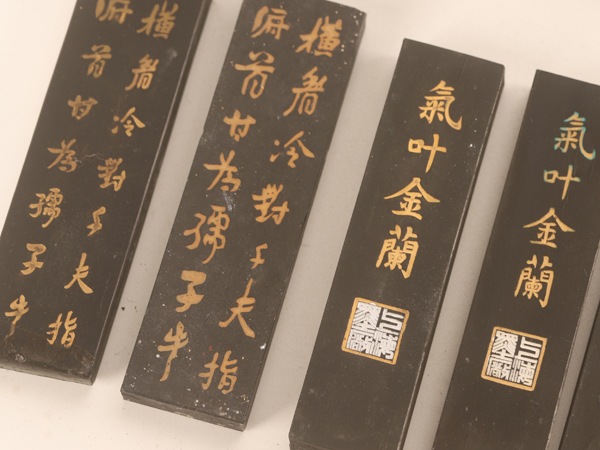 橫眉冷對千夫指
俯首甘為孺子牛
橫眉冷對千夫指
俯首甘為孺子牛
氣叶金蘭
氣叶金蘭